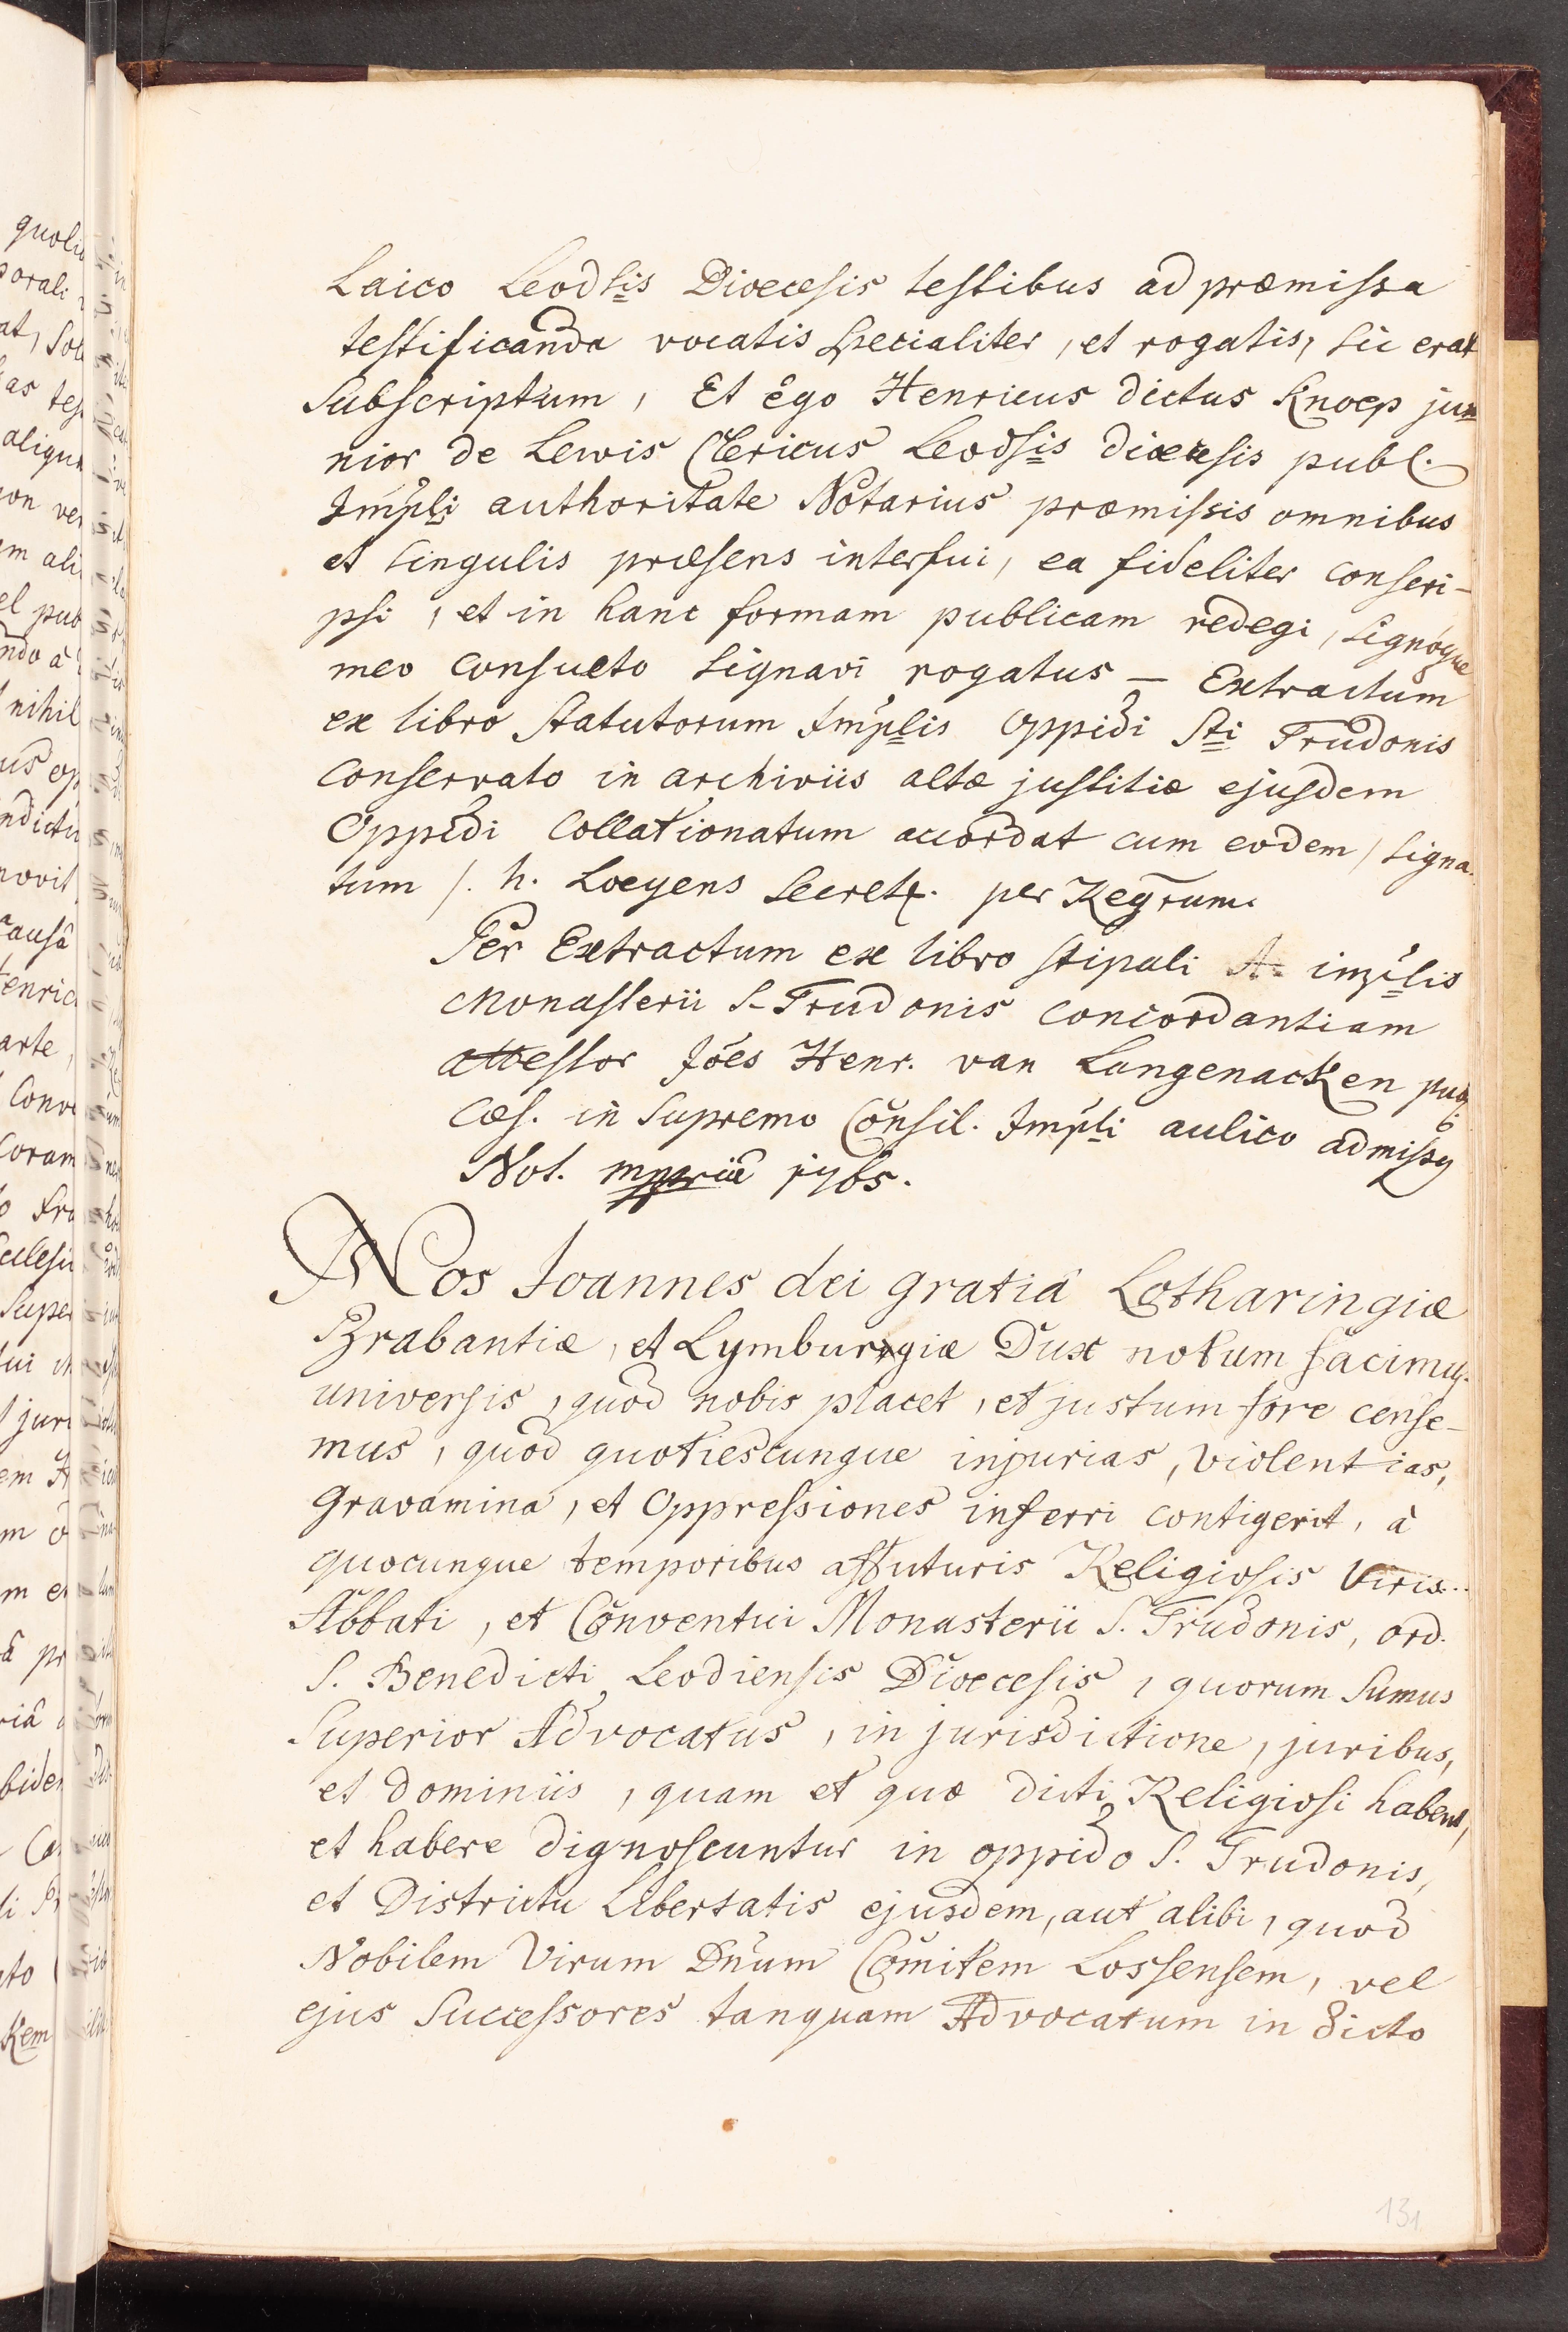 Laico Leodsis Dioecesis testibus ad præmissa
testificanda vocatis specialiter, et rogatis, sic erat
subscriptum, Et Ego Henricus dictus Knoep ju=
nior de Lewis Clericus Leodsis dioecesis publ.
Imp̃li authoritate Notarius præmissis omnibus
et singulis præsens interfui, ea fideliter conscri-
psi, et in hanc formam publicam redegi, signoque
meo consueto signavi rogatus — Extractum
ex libro statutorum Imp̃lis Oppidi Sti Trudonis
conservato in archiviis altæ justitiæ ejusdem
Oppidi Collationatum accordat cum eodem / signa=
tum /. h. Loeyens Secret. per Reg̃rum.
Per Extractum ex libro stipali A imp̃lis
Monasterii S. Trudonis concordantiam
attestor Jões Henr. van Langenacken pub.
Cæs. in supremo Consil. Imp̃li aulico admissq
Not. mppriâ 1765.
Nos Joannes dei gratiâ Lotharingiæ
Brabantiæ, et Lymburgiæ Dux notum facimus
universis, quod nobis placet, et justum fore cense-
mus, quod quotiescunque injurias, violentias,
Gravamina, et Oppressiones inferri contigerit, à
quocunque temporibus affuturis Religiosis Viris..
Abbati, et Conventui Monasterii S. Trudonis, ord.
S. Benedicti Leodiensis Dioecesis, quorum sumus
Superior Advocatus, in jurisdictione, juribus,
et dominiis, quam et quæ dicti Religiosi habent,
et habere dignoscuntur in oppido S. Trudonis,
et Districtu Libertatis ejusdem, aut alibi, quod
Nobilem Virum Dñum Comitem Lossensem, vel
ejus Successores tanquam Advocatum in dicto
131